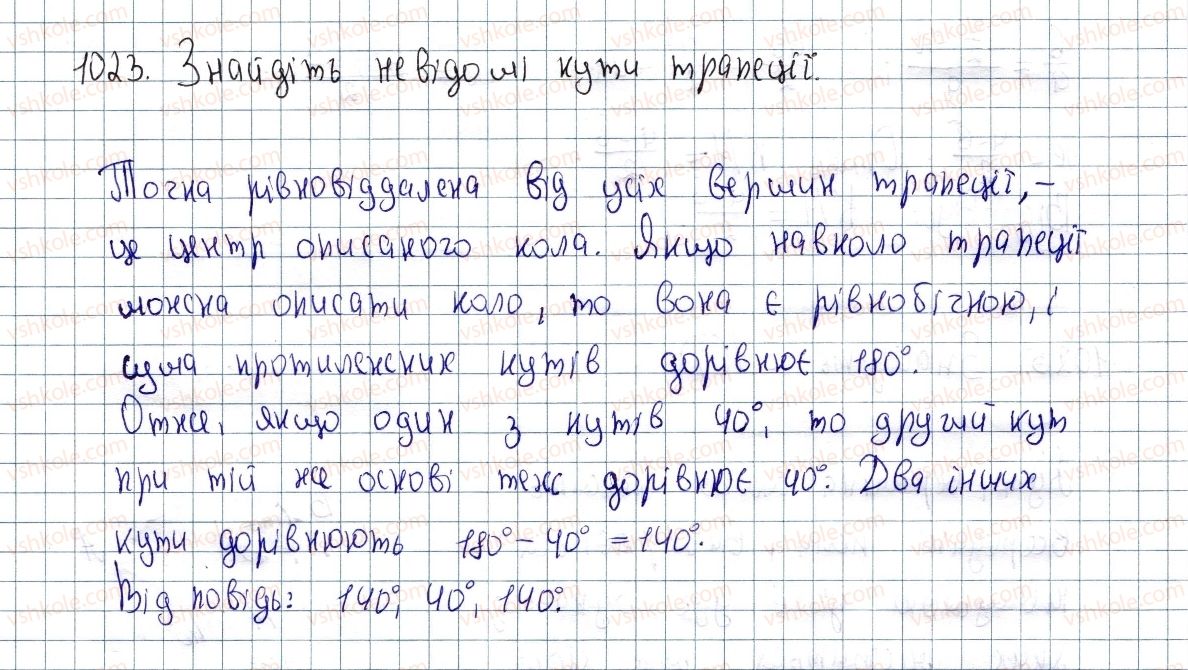 1023. Знайдіть невідомі кути трапеції.
Точка рівновіддалена від усіх вершин трапеції, -
це центр описаного кола. Якщо навколо трапеції
можна описати коло, то вона є рівнобічною, і
сума протилежних кутів дорівнює 180°.
Отже, якщо один з кутів 40°, то другий кут
при тій же основі теж дорівнює 40°. Два інших
кути дорівнюють 180° - 40° = 140°.
Відповідь: 140°, 40°, 140°.